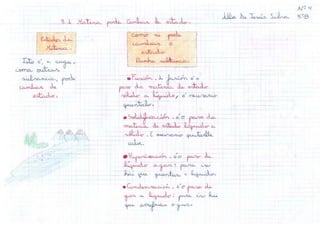 Nº 4
Alba De Jesús 5ºB
3.2 Materia puede cambiar de estado.
Estados de
Materia.
como se puede
cambiar o
estado
Dunha substancia.
Isto é, a auga,
como outras
substancias, pode
cambiar de
estado.
• Fusión. A fusión é o
paso da materia de estado
sólido a líquido, é necesario
quentalo.
• Solidificación. é o paso da
materia de estado líquido a
sólido. É necesario
calor.
• Vaporización. é o paso de
líquido a gas: para iso
hai que quentar o líquido.
• Condensación. é o paso de
gas a líquido: para iso hai
que arrefriar o gas.